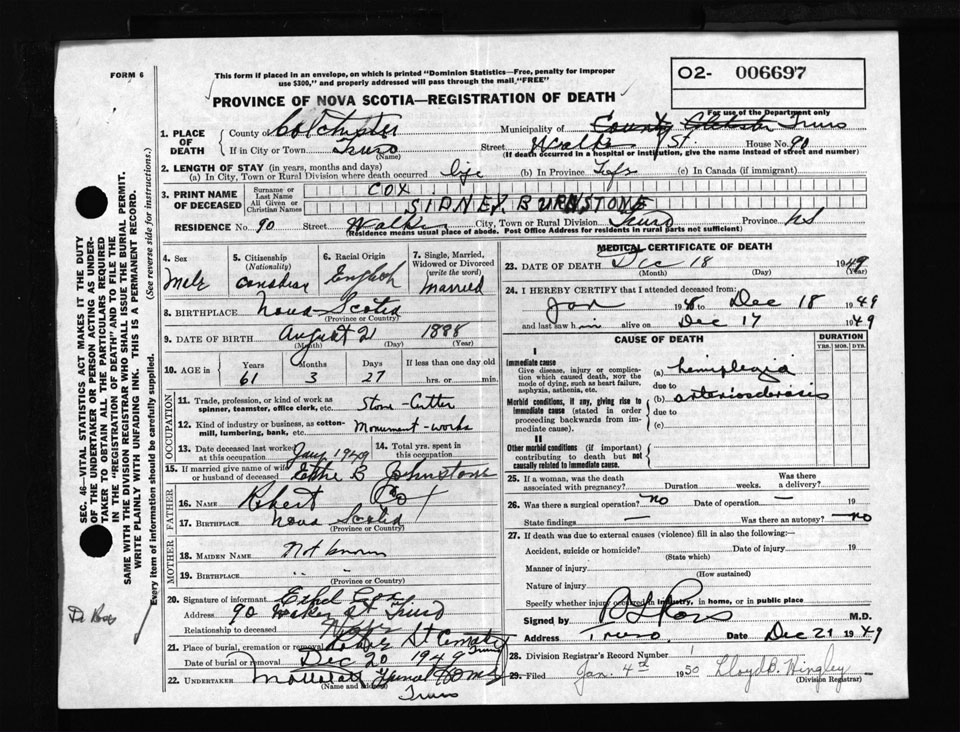 FORM 6
This form if placed in an envelope, on which is printed "Dominion Statistics—Free, penalty for improper
use $300," and properly addressed will pass through the mail "FREE"
PROVINCE OF NOVA SCOTIA—REGISTRATION OF DEATH
02- 006697
For use of the Department only
1. PLACE OF DEATH County of Colchester Municipality of County Truro
If in City or Town Truro (Name) Street Walker St House No. 90
(If death occurred in a hospital or institution, give the name instead of street and number)
2. LENGTH OF STAY (in years, months and days)
(a) In City, Town or Rural Division where death occurred life (b) In Province (c) In Canada (if immigrant)
3. PRINT NAME OF DECEASED Surname or Last Name COX
All Given or Christian Names SIDNEY BURNSTONE
RESIDENCE No. 90 Street Walker City, Town or Rural Division Truro Province NS
(Residence means usual place of abode. Post Office Address for residents in rural parts not sufficient)
4. Sex Male
5. Citizenship (Nationality) Canadian
6. Racial Origin English
7. Single, Married, Widowed or Divorced (write the word) Married
8. BIRTHPLACE Nova Scotia
(Province or Country)
9. DATE OF BIRTH August 21 1888
(Month) (Day) (Year)
10. AGE in Years 61 Months 3 Days 27 If less than one day old
hrs. or min.
OCCUPATION
11. Trade, profession, or kind of work as
spinner, teamster, office clerk, etc. Stone-Cutter
12. Kind of industry or business, as cotton-
mill, lumbering, bank, etc. Monument-works
13. Date deceased last worked at this occupation 1949
14. Total yrs. spent in this occupation
15. If married give name of wife or husband of deceased B Johnstone
FATHER
16. Name Robert Cox
17. BIRTHPLACE Nova Scotia
(Province or Country)
MOTHER
18. MAIDEN NAME Not known
19. BIRTHPLACE " "
(Province or Country)
20. Signature of informant Ethel Cox
Address 90 Walker St Truro
Relationship to deceased Wife
21. Place of burial, cremation or removal Truro
Date of burial or removal Dec 20 1949
22. UNDERTAKER Funeral Home
(Name and address) Truro
MEDICAL CERTIFICATE OF DEATH
23. DATE OF DEATH Dec 18 1949
(Month) (Day) (Year)
24. I HEREBY CERTIFY that I attended deceased from:
Jan 1948 to Dec 18 1949
and last saw him alive on Dec 17 1949
CAUSE OF DEATH
DURATION
YRS. MOS. DYS.
I
Immediate cause
Give disease, injury or complica-
tion which caused death, not the
mode of dying, such as heart failure,
asphyxia, asthenia, etc.
(a) hemiplegia
due to
Morbid conditions, if any, giving rise to
immediate cause (stated in order
proceeding backwards from im-
mediate cause).
(b) arteriosclerosis
due to
(c)
II
Other morbid conditions (if important)
contributing to death but not
causally related to immediate cause.
25. If a woman, was the death associated with pregnancy? Duration weeks. Was there a delivery?
26. Was there a surgical operation? no Date of operation — 19
State findings — Was there an autopsy? no
27. If death was due to external causes (violence) fill in also the following:
Accident, suicide or homicide? Date of injury 19
(State which)
Manner of injury
(How sustained)
Nature of injury
Specify whether injury occurred in industry, in home, or in public place
Signed by Ross M.D.
Address Truro. Date Dec 21 1949
28. Division Registrar's Record Number
29. Filed Jan. 4th 1950 Lloyd B. Hingley
(Division Registrar)
SEC. 46—VITAL STATISTICS ACT MAKES IT THE DUTY
OF THE UNDERTAKER OR PERSON ACTING AS UNDER-
TAKER TO OBTAIN ALL THE PARTICULARS REQUIRED
IN THE "REGISTRATION OF DEATH" AND TO FILE THE
SAME WITH THE DIVISION REGISTRAR WHO SHALL ISSUE THE BURIAL PERMIT.
WRITE PLAINLY WITH UNFADING INK. THIS IS A PERMANENT RECORD.
Every item of information should be carefully supplied. (See reverse side for instructions.)